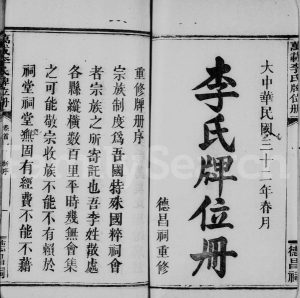 萬載李氏牌位册
大中華民國三十三年春月
李氏牌位册
德昌祠重修
重修牌册序
宗族制度爲吾國特殊國粹祠會
者宗族之所寄託也吾李姓散處
各縣縱橫數百里平時幾無會集
之可能敬宗收族不能不有賴於
祠堂祠堂無固有經費不能不藉